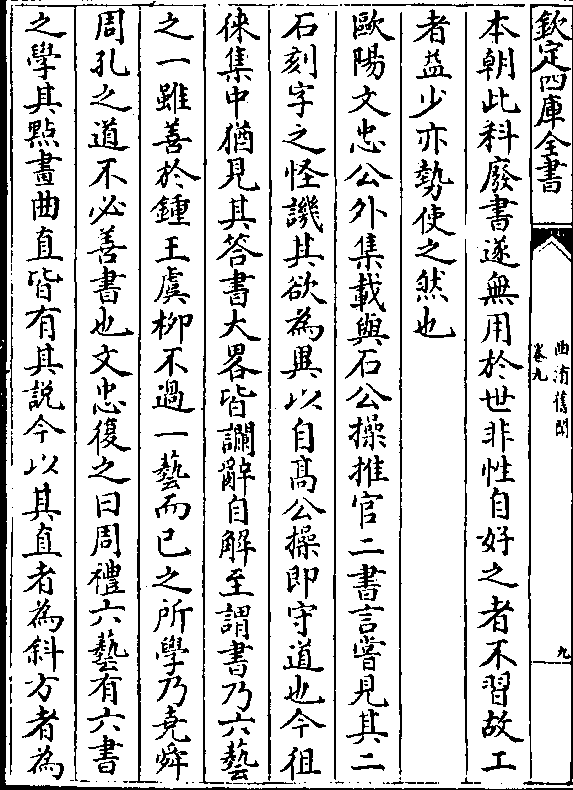 欽定四庫全書
曲洧舊聞
卷九
九
本朝此科廢書遂無用於世非性自好之者不習故工
者益少亦勢使之然也
歐陽文忠公外集載與石公操推官二書言嘗見其二
石刻字之怪譏其欲為異以自高公操即守道也今徂
徠集中猶見其答書大畧皆讕辭自解至謂書乃六藝
之一雖善於鍾王虞柳不過一藝而已之所學乃堯舜
周孔之道不必善書也文忠復之曰周禮六藝有六書
之學其點畫曲直皆有其説今以其直者為斜方者為